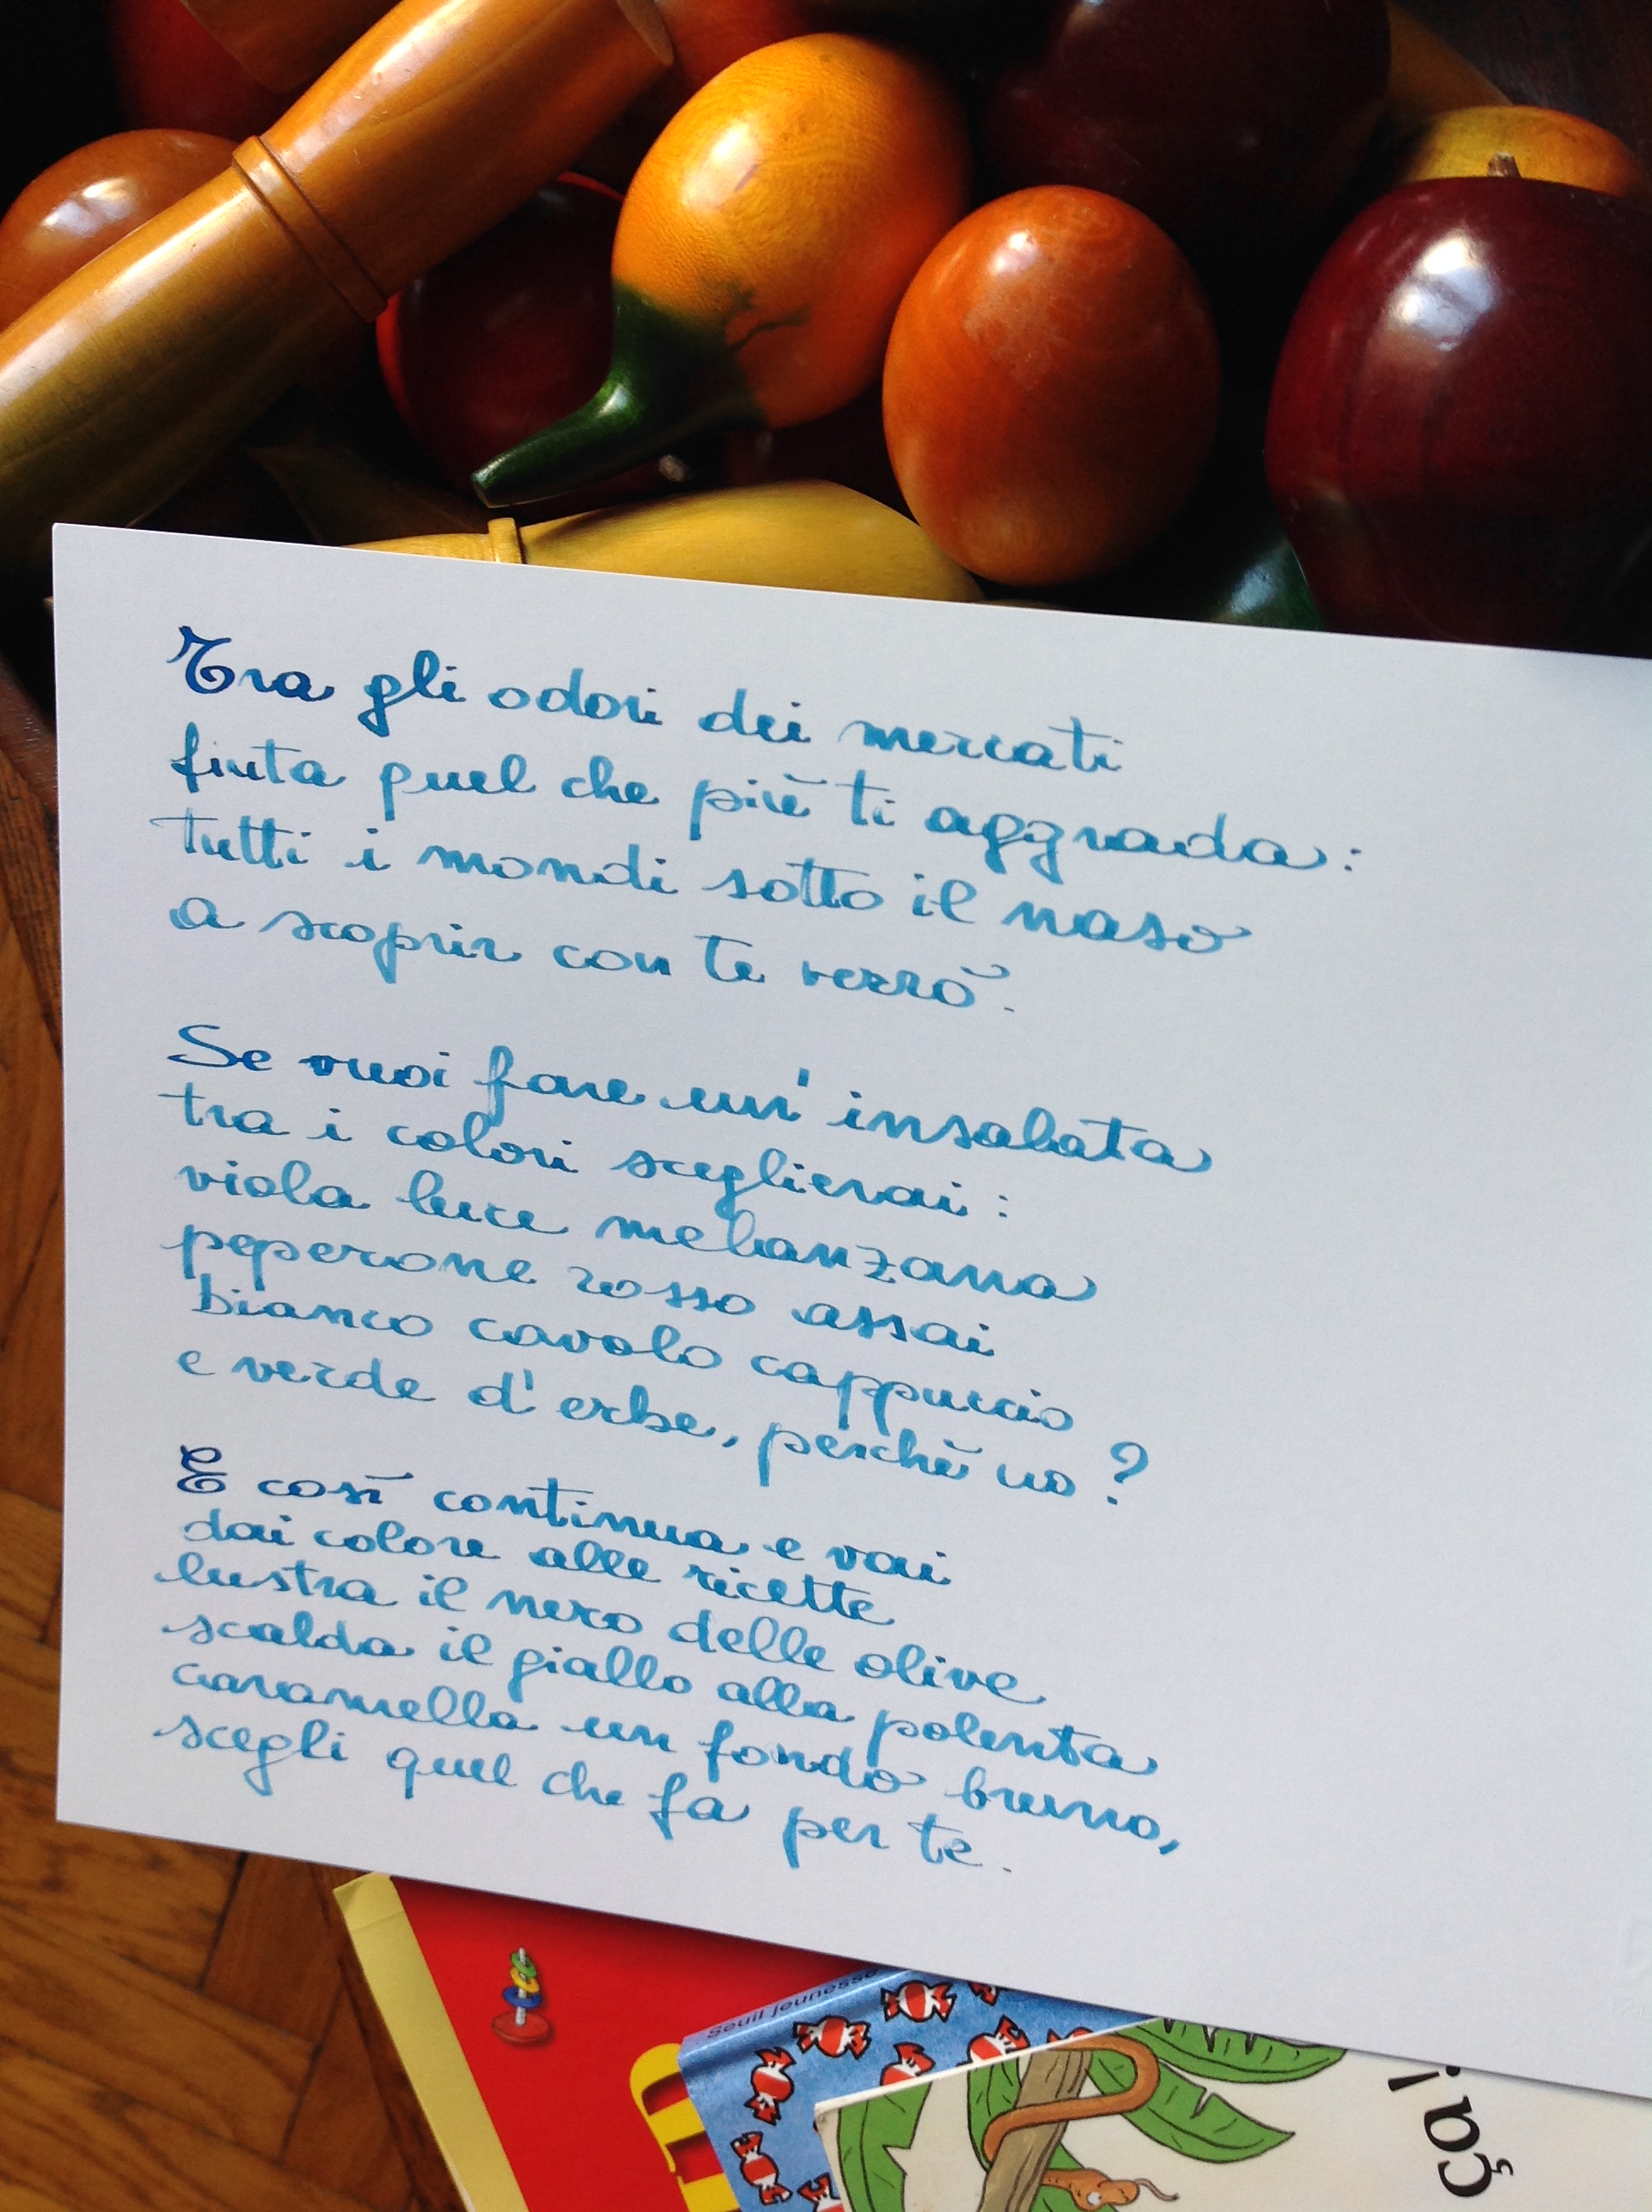 Tra gli odori dei mercati
fiuta quel che più ti aggrada:
tutti i mondi sotto il naso
a scoprir con te verrò.
Se vuoi fare un' insalata
tra i colori sceglierai:
viola luce melanzana
peperone rosso assai
bianco cavolo cappuccio
e verde d'erbe, perchè no?
E così continua e vai
dai colore alle ricette
lustra il nero delle olive
scalda il giallo alla polenta
caramella un fondo bruno,
scegli quel che fa per te.
Seuil jeunesse
ça!